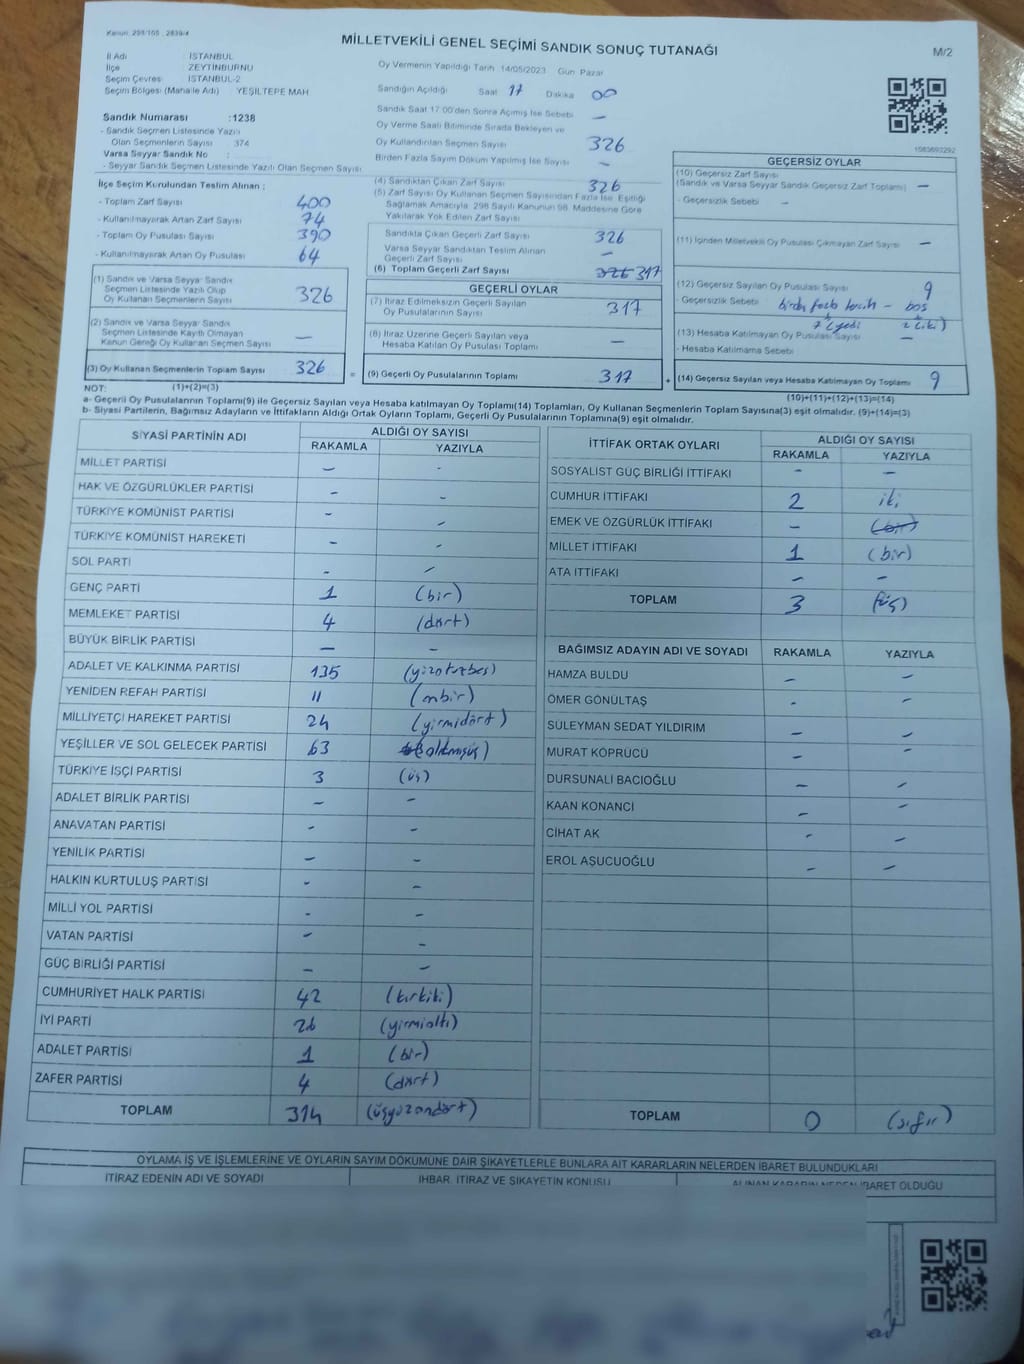 Kanun: 298/105 , 2839/4
MİLLETVEKİLİ GENEL SEÇİMİ SANDIK SONUÇ TUTANAĞI
M/2
İl Adı : İSTANBUL
İlçe : ZEYTİNBURNU
Seçim Çevresi : İSTANBUL-2
Seçim Bölgesi (Mahalle Adı) : YEŞİLTEPE MAH
Oy Vermenin Yapıldığı Tarih :14/05/2023 Gün: Pazar
Sandığın Açıldığı Saat 17 Dakika 00
Sandık Saat 17:00'den Sonra Açımış İse Sebebi —
Oy Verme Saati Bitiminde Sırada Bekleyen ve
Oy Kullandırılan Seçmen Sayısı 326
Birden Fazla Sayım Döküm Yapılmış İse Sayısı —
Sandık Numarası :1238
- Sandık Seçmen Listesinde Yazılı
Olan Seçmenlerin Sayısı 374
Varsa Seyyar Sandık No :
- Seyyar Sandık Seçmen Listesinde Yazılı Olan Seçmen Sayısı:
İlçe Seçim Kurulundan Teslim Alınan ;
- Toplam Zarf Sayısı 400
- Kullanılmayarak Artan Zarf Sayısı 74
- Toplam Oy Pusulası Sayısı 390
- Kullanılmayarak Artan Oy Pusulası 64
(1) Sandık ve Varsa Seyyar Sandık
Seçmen Listesinde Yazılı Olup
Oy Kullanan Seçmenlerin Sayısı 326
(2) Sandık ve Varsa Seyyar Sandık
Seçmen Listesinde Kayıtlı Olmayan
Kanun Gereği Oy Kullanan Seçmen Sayısı —
(3) Oy Kullanan Seçmenlerin Toplam Sayısı 326 =
(4) Sandıktan Çıkan Zarf Sayısı 326
(5) Zarf Sayısı Oy Kullanan Seçmen Sayısından Fazla İse, Eşitliği
Sağlamak Amacıyla, 298 Sayılı Kanunun 98. Maddesine Göre
Yakılarak Yok Edilen Zarf Sayısı
Sandıkta Çıkan Geçerli Zarf Sayısı 326
Varsa Seyyar Sandıktan Teslim Alınan
Geçerli Zarf Sayısı —
(6) Toplam Geçerli Zarf Sayısı 326 317
GEÇERLİ OYLAR
(7) İtiraz Edilmeksizin Geçerli Sayılan
Oy Pusulalarının Sayısı 317
(8) İtiraz Üzerine Geçerli Sayılan veya
Hesaba Katılan Oy Pusulası Toplamı —
(9) Geçerli Oy Pusulalarının Toplamı 317 +
1083693292
GEÇERSİZ OYLAR
(10) Geçersiz Zarf Sayısı
(Sandık ve Varsa Seyyar Sandık Geçersiz Zarf Toplamı) —
- Geçersizlik Sebebi -
(11) İçinden Milletvekili Oy Pusulası Çıkmayan Zarf Sayısı —
(12) Geçersiz Sayılan Oy Pusulası Sayısı 9
- Geçersizlik Sebebi birden fazla tercih - boş
7 (yedi 2 (iki)
(13) Hesaba Katılmayan Oy Pusulası Sayısı —
- Hesaba Katılmama Sebebi
(14) Geçersiz Sayılan veya Hesaba Katılmayan Oy Toplamı 9
NOT: (1)+(2)=(3)
(10)+(11)+(12)+(13)=(14)
a- Geçerli Oy Pusulalarının Toplamı(9) ile Geçersiz Sayılan veya Hesaba katılmayan Oy Toplamı(14) Toplamları, Oy Kullanan Seçmenlerin Toplam Sayısına(3) eşit olmalıdır. (9)+(14)=(3)
b- Siyasi Partilerin, Bağımsız Adayların ve İttifakların Aldığı Ortak Oyların Toplamı, Geçerli Oy Pusulalarının Toplamına(9) eşit olmalıdır.
SİYASİ PARTİNİN ADI ALDIĞI OY SAYISI
RAKAMLA YAZIYLA
MİLLET PARTİSİ — -
HAK VE ÖZGÜRLÜKLER PARTİSİ - -
TÜRKİYE KOMÜNİST PARTİSİ - -
TÜRKİYE KOMÜNİST HAREKETİ - -
SOL PARTİ - -
GENÇ PARTİ 1 (bir)
MEMLEKET PARTİSİ 4 (dört)
BÜYÜK BİRLİK PARTİSİ — -
ADALET VE KALKINMA PARTİSİ 135 (yüzotuzbeş)
YENİDEN REFAH PARTİSİ 11 (onbir)
MİLLİYETÇİ HAREKET PARTİSİ 24 (yirmidört)
YEŞİLLER VE SOL GELECEK PARTİSİ 63 (altmışüç)
TÜRKİYE İŞÇİ PARTİSİ 3 (üç)
ADALET BİRLİK PARTİSİ - -
ANAVATAN PARTİSİ - -
YENİLİK PARTİSİ - -
HALKIN KURTULUŞ PARTİSİ - -
MİLLİ YOL PARTİSİ - -
VATAN PARTİSİ - -
GÜÇ BİRLİĞİ PARTİSİ - -
CUMHURİYET HALK PARTİSİ 42 (kırkiki)
İYİ PARTİ 26 (yirmialtı)
ADALET PARTİSİ 1 (bir)
ZAFER PARTİSİ 4 (dört)
TOPLAM 314 (üçyüzondört)
İTTİFAK ORTAK OYLARI ALDIĞI OY SAYISI
RAKAMLA YAZIYLA
SOSYALİST GÜÇ BİRLİĞİ İTTİFAKI - -
CUMHUR İTTİFAKI 2 iki
EMEK VE ÖZGÜRLÜK İTTİFAKI - (bir)
MİLLET İTTİFAKI 1 (bir)
ATA İTTİFAKI - -
TOPLAM 3 (üç)
BAĞIMSIZ ADAYIN ADI VE SOYADI RAKAMLA YAZIYLA
HAMZA BULDU - -
ÖMER GÖNÜLTAŞ - -
SÜLEYMAN SEDAT YILDIRIM - -
MURAT KÖPRÜCÜ - -
DURSUNALİ BACIOĞLU - -
KAAN KONANCİ - -
CİHAT AK - -
EROL AŞUCUOĞLU - -
TOPLAM 0 (sıfır)
OYLAMA İŞ VE İŞLEMLERİNE VE OYLARIN SAYIM DÖKÜMÜNE DAİR ŞİKAYETLERLE BUNLARA AİT KARARLARIN NELERDEN İBARET BULUNDUKLARI
İTİRAZ EDENİN ADI VE SOYADI İHBAR, İTİRAZ VE ŞİKAYETİN KONUSU ALINAN KARARIN NEDEN İBARET OLDUĞU